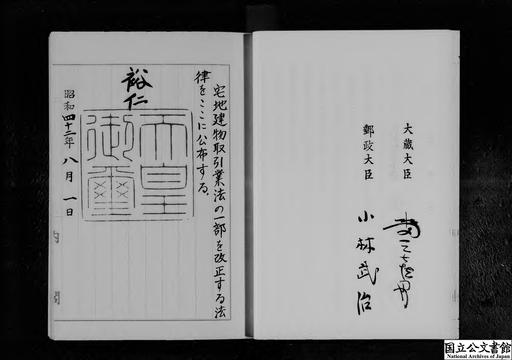 大蔵大臣
郵政大臣
小林武治
宅地建物取引業法の一部を改正する法
律をここに公布する。
裕仁
天皇
御璽
昭和四十二年八月一日
国立公文書館
National Archives of Japan